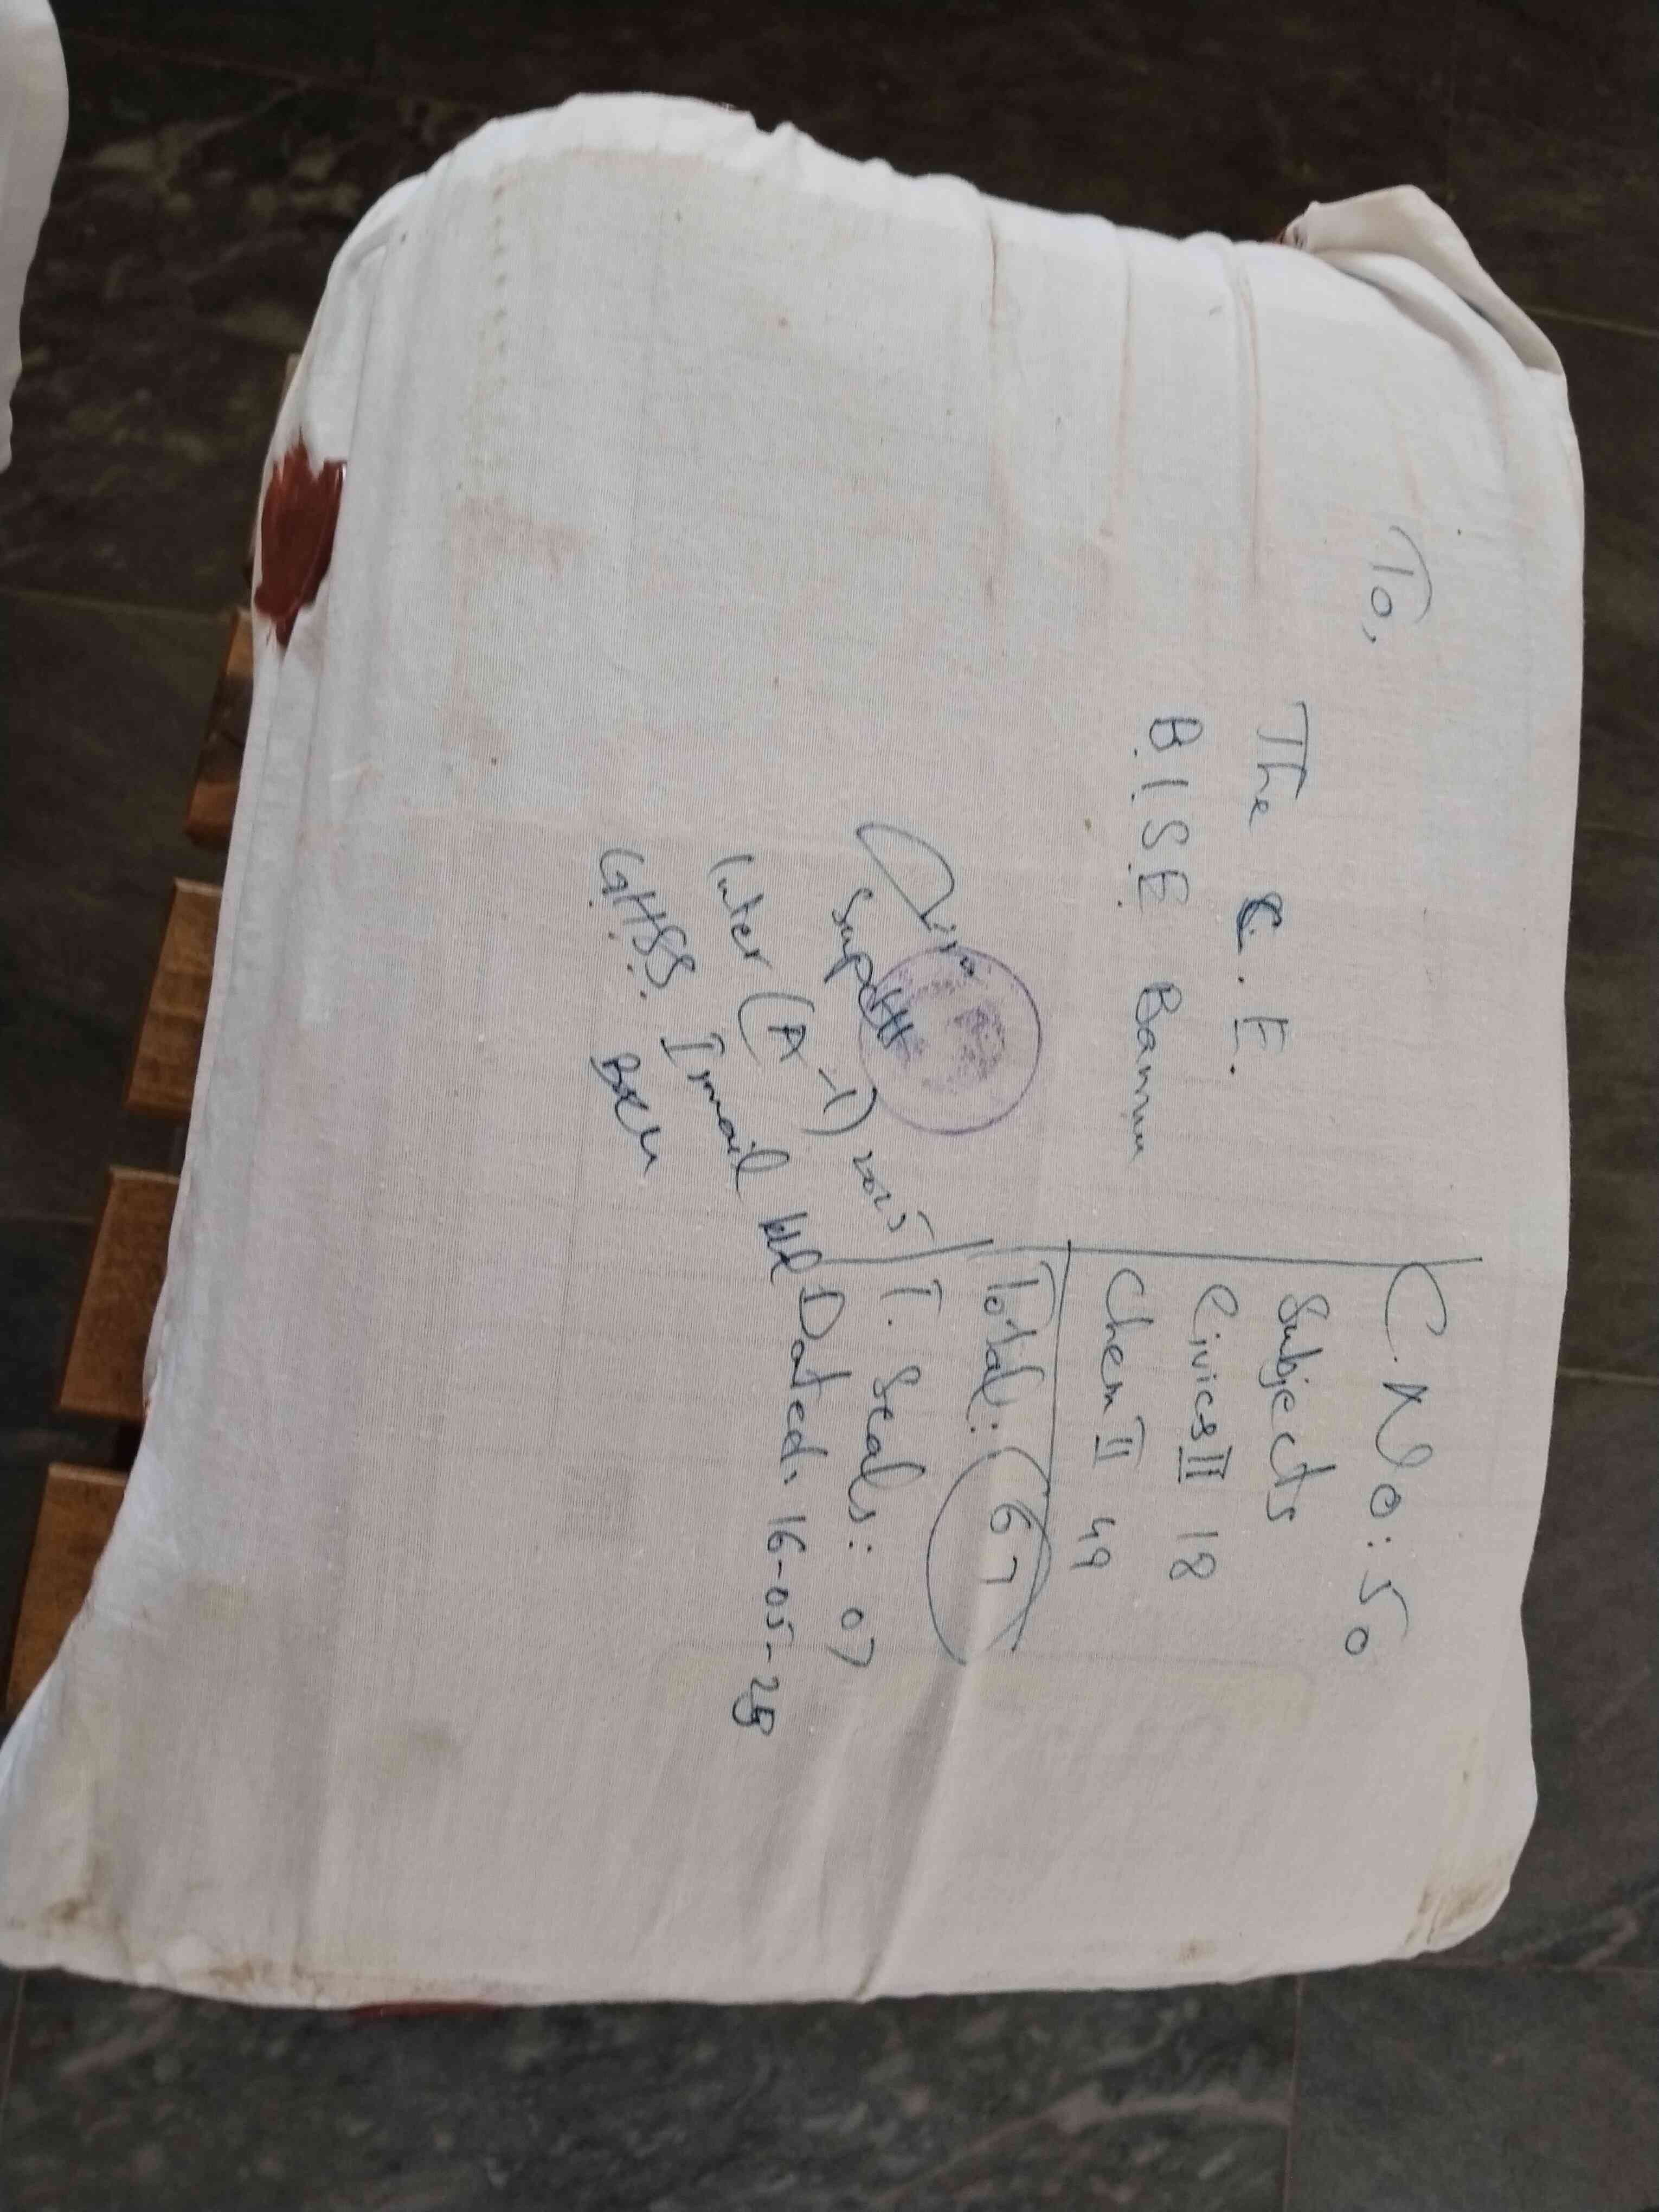 To,
The C.E.
B.I.S.E Bannu
C.No: 50
Subjects
Civics II 18
Chem II 49
Total: 67
T. Seals: 07
Dated. 16-05-25
Supdtt
Inter (A-1) 2025
GHSS. Ismail